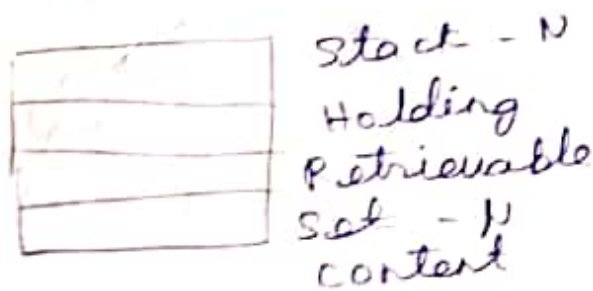 Stack - N
Holding
Retrievable
Set - N
Content